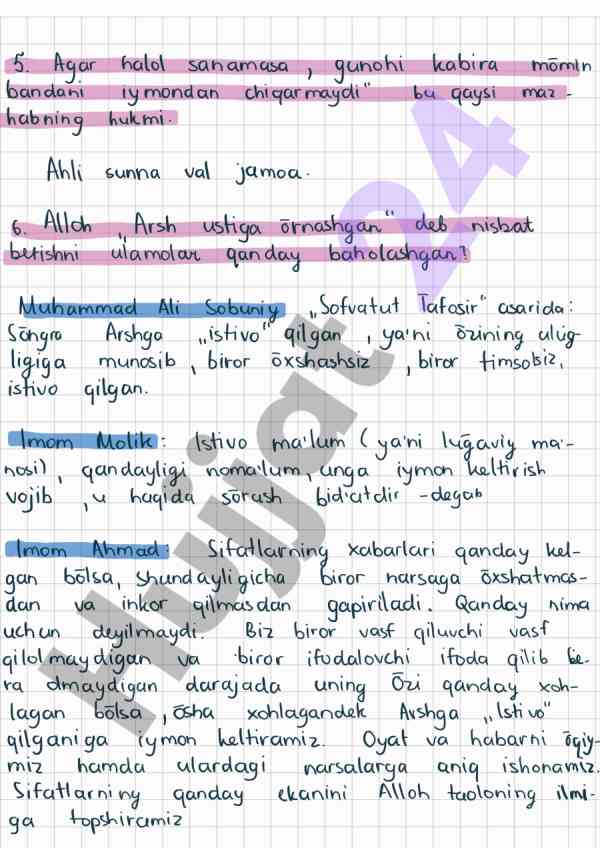 5. Agar halol sanamasa, gunohi kabira mōmin
bandani iymondan chiqarmaydi" bu qaysi maz-
habning hukmi.
Ahli sunna val jamoa.
6. Alloh „Arsh ustiga ōrnashgan" deb nisbat
berishni ulamolar qanday baholashgan?
Muhammad Ali Sobuniy „Sofvatut Tafosir" asarida:
Sōngra Arshga „istivo" qilgan, ya'ni ōzining ulug-
ligiga munosib, biror ōxshashsiz, biror timsolsiz,
istivo qilgan.
Imom Molik: Istivo ma'lum (ya'ni luḡaviy ma'-
nosi), qandayligi noma'lum, unga iymon keltirish
vojib, u haqida sōrash bid'atdir -degan
Imom Ahmad: Sifatlarning xabarlari qanday kel-
gan bōlsa, shundayligicha biror narsaga ōxshatmas-
dan va inkor qilmasdan gapiriladi. Qanday nima
uchun deyilmaydi. Biz biror vasf qiluvchi vasf
qilolmaydigan va biror ifodalovchi ifoda qilib be-
ra olmaydigan darajada uning Ōzi qanday xoh-
lagan bōlsa, ōsha xohlagandek Arshga „Istivo"
qilganiga iymon keltiramiz. Oyat va habarni ōqiy-
miz hamda ulardagi narsalarga aniq ishonamiz.
Sifatlarning qanday ekanini Alloh taoloning ilmi-
ga topshiramiz
Hujjat 24